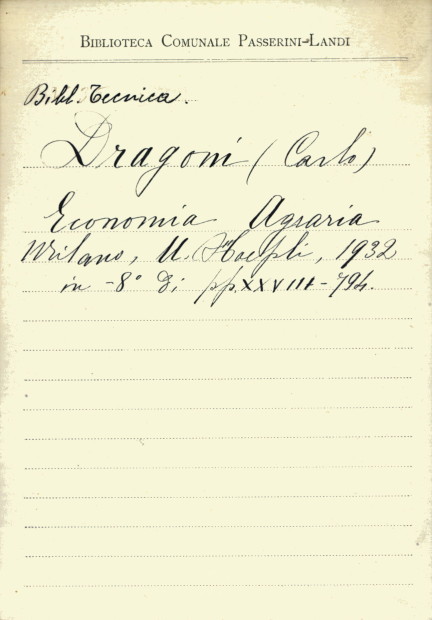 BIBLIOTECA COMUNALE PASSERINI-LANDI
Bibl. Tecnica.
Dragoni (Carlo)
Economia Agraria
Milano, U. Hoepli, 1932
in -8° di pp. XXVIII-794.